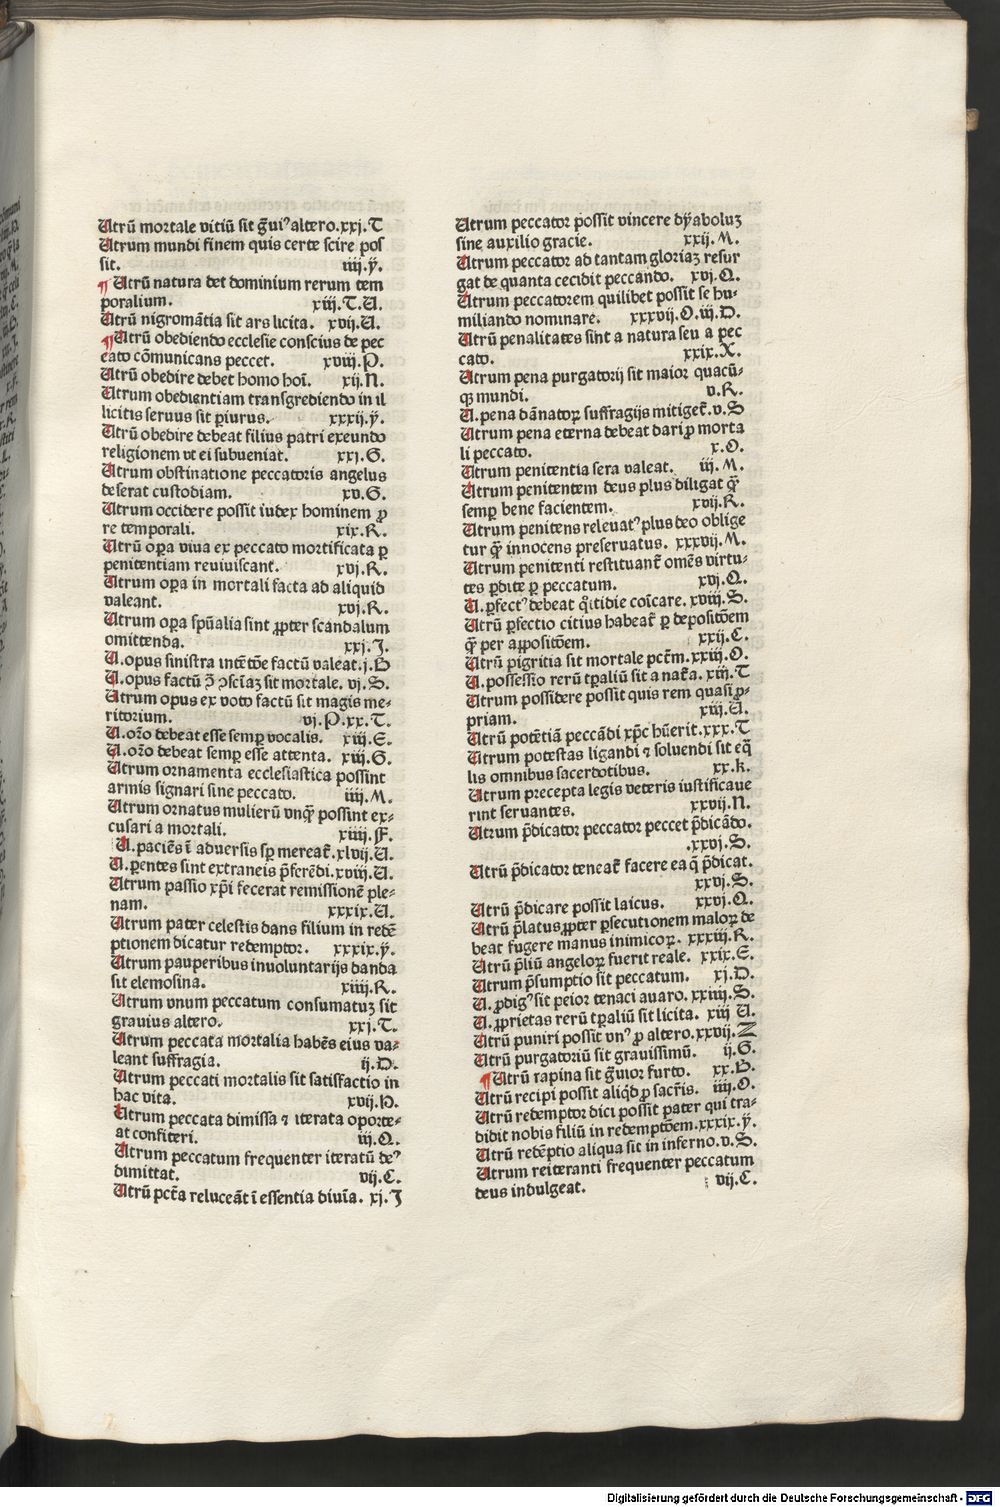 Utrū mortale vitiū sit ḡui⁹ altero.xxj.T
Utrum mundi finem quis certe scire pos
sit. iiij.ẏ.
¶ Utrū natura det dominium rerum tem
poralium. xiij.T.U.
Utrū nigromātia sit ars licita. xvij.U.
¶ Utrū obediendo ecclesie conscius de pec
cato cōmunicans peccet. xviij.P.
Utrū obedire debet homo hoī. xij.N.
Utrum obedientiam transgrediendo in il
licitis seruus sit ꝑiurus. xxxij.ẏ.
Utrū obedire debeat filius patri exeundo
religionem vt ei subueniat. xxj.G.
Utrum obstinatione peccatoris angelus
deserat custodiam. xv.G.
Utrum occidere possit iudex hominem ꝓ
re temporali. xix.R.
Utrū oꝑa viua ex peccato mortificata ꝑ
penitentiam reuiuiscant̄. xvj.R.
Utrum oꝑa in mortali facta ad aliquid
valeant. xvj.R.
Utrum oꝑa spūalia sint ꝓpter scandalum
omittenda. xxj.J.
U.opus sinistra intētōe factū valeat.j.B
U.opus factū ꝯ̄ ꝯsciaꝫ sit mortale. vj.S.
Utrum opus ex voto factū sit magis me-
ritorium. vj.P.xx.T.
U.orō debeat esse semꝑ vocalis. xiij.E.
U.orō debeat semꝑ esse attenta. xiij.G.
Utrum ornamenta ecclesiastica possint
armis signari sine peccato. iiij.M.
Utrum ornatus mulierū vnq̄ possint ex-
cusari a mortali. xiiij.F.
U.paciēs ī aduersis sꝑ mereat̄.xlvij.U.
U.ꝑentes sint extraneis p̄ferēdi.xviij.U.
Utrum passio xp̄i fecerat remissionē ple-
nam. xxxix.U.
Utrum pater celestis dans filium in redē
ptionem dicatur redemptor. xxxix.ẏ.
Utrum pauperibus inuoluntarijs danda
sit elemosina. xiiij.R.
Utrum vnum peccatum consumatuꝫ sit
grauius altero. xxj.T.
Utrum peccata mortalia habēs eius va-
leant suffragia. ij.D.
Utrum peccati mortalis sit satisfactio in
hac vita. xvij.P.
Utrum peccata dimissa ⁊ iterata oporte-
at confiteri. iij.Q.
Utrum peccatum frequenter iteratū de⁹
dimittat. vij.C.
Utrū pctā reluceāt ī essentia diuīa. xj.J
Utrum peccator possit vincere dẏaboluꝫ
sine auxilio gracie. xxij.M.
Utrum peccator ad tantam gloriaꝫ resur
gat de quanta cecidit peccando. xvj.Q.
Utrum peccatorem quilibet possit se hu-
miliando nominare. xxxvij.O.iij.D.
Utrū penalitates sint a natura seu a pec
cato. xxix.X.
Utrum pena purgatorij sit maior quacū-
qꝫ mundi. v.R.
U.pena dānatoꝝ suffragijs mitiget̄.v.S
Utrum pena eterna debeat dari ꝓ morta
li peccato. x.O.
Utrum penitentia sera valeat. iij.M.
Utrum penitentem deus plus diligat q̄
semꝑ bene facientem. xvij.R.
Utrum penitens releuat⁹ plus deo oblige
tur q̄ innocens preseruatus. xxxvij.M.
Utrum penitenti restituant̄ omēs virtu-
tes ꝑdite ꝑ peccatum. xvj.Q.
U.ꝑfect⁹ debeat q̊tidie coīcare.xviij.S.
Utrū ꝑfectio citius habeat̄ ꝑ depositōem
q̄ per apꝓsitōem. xxij.C.
Utrū pigritia sit mortale pctm̄.xxiij.O.
U.possessio rerū tꝑaliū sit a nat̄a.xiij.T
Utrum possidere possit quis rem quasi ꝓ-
priam. xiij.U.
Utrū potētiā peccādi xp̄c hūerit.xxx.T
Utrum potestas ligandi ⁊ soluendi sit eq̄
lis omnibus sacerdotibus. xx.k.
Utrum precepta legis veteris iustificaue
rint seruantes. xxvij.N.
Utrum p̄dicator peccator peccet p̄dicādo.
.xxvj.S.
Utrū p̄dicator teneat̄ facere ea q̄ p̄dicat.
xxvj.S.
Utrū p̄dicare possit laicus. xxvj.Q.
Utrū p̄latus ꝓpter ꝑsecutionem maloꝝ de
beat fugere manus inimicoꝝ. xxxiij.R.
Utrū p̄liū angeloꝝ fuerit reale. xxix.E.
Utrum p̄sumptio sit peccatum. xj.D.
U.ꝓdig⁹ sit peior tenaci auaro.xxiiij.S.
U.ꝓprietas rerū tꝑaliū sit licita. xiij U.
Utrū puniri possit vn⁹ ꝓ altero.xxvij.Z
Utrū purgatoriū sit grauissimū. ij.G.
¶ Utrū rapina sit ḡuior furto. xx.B.
Utrū recipi possit aliqd̄ ꝓ sacr̄is. iiij.O.
Utrū redemptor dici possit pater qui tra-
didit nobis filiū in redemptōem.xxxix.ẏ.
Utrū redēptio aliqua sit in inferno.v.S.
Utrum reiteranti frequenter peccatum
deus indulgeat. vij.C.
Digitalisierung gefördert durch die Deutsche Forschungsgemeinschaft - DFG